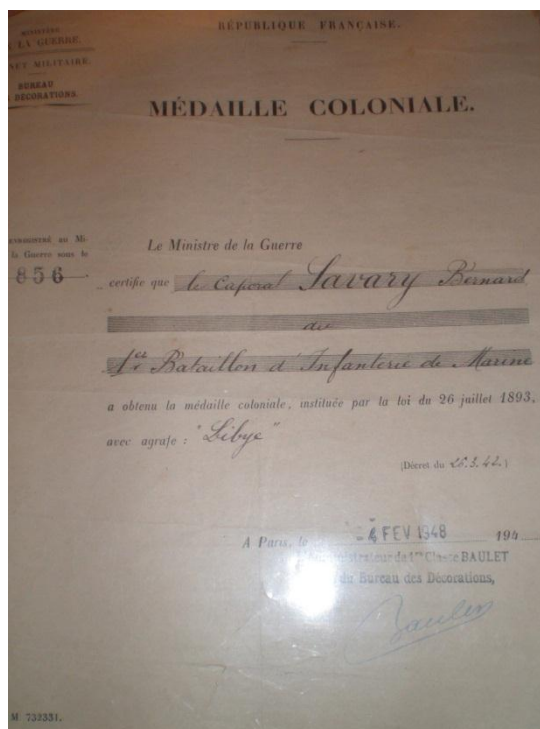 RÉPUBLIQUE FRANÇAISE.
MINISTÈRE
LA GUERRE.
MILITAIRE.
BUREAU
DÉCORATIONS.
MÉDAILLE COLONIALE.
au Mi-
la Guerre sous le
856
Le Ministre de la Guerre
certifie que le Caporal Savary Bernard
du
1er Bataillon d'Infanterie de Marine
a obtenu la médaille coloniale, instituée par la loi du 26 juillet 1893,
avec agrafe : "Libye"
(Décret du 26.3.42.)
A Paris, le 4 FEV 1948 194
de 1re Classe BAULET
du Bureau des Décorations,
Baulet
M 732351.